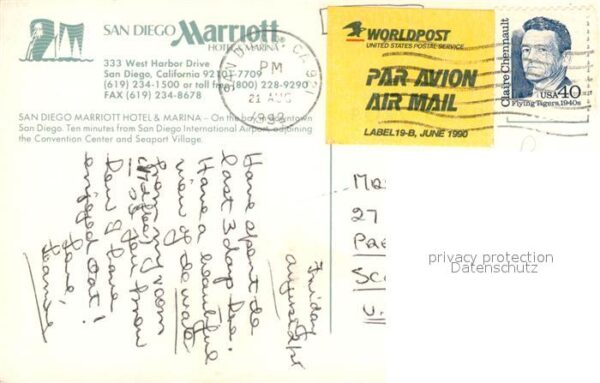 SAN DIEGO Marriott
HOTEL & MARINA
333 West Harbor Drive
San Diego, California 92101-7709
(619) 234-1500 or toll free (800) 228-9290
FAX (619) 234-8678
SAN DIEGO MARRIOTT HOTEL & MARINA – On the bay in downtown
San Diego. Ten minutes from San Diego International Airport, adjoining
the Convention Center and Seaport Village.
SAN DIEGO, CA
PM
21 AUG
1992
WORLDPOST
UNITED STATES POSTAL SERVICE
PAR AVION
AIR MAIL
LABEL 19-B, JUNE 1990
Claire Chennault
USA 40
Flying Tigers, 1940s
Friday
August 21st
Have spent the
last 3 days here.
Have a beautiful
view of the water
from my room
of you know
how I love
enjoyed that!
Love,
27
privacy protection
Datenschutz